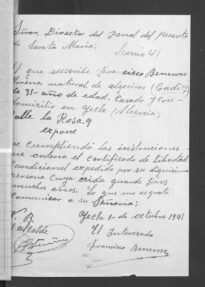 Señor Director del penal del puerto
de Santa Maria.
Murcia 41
El que suscribe Francisco Benenoso
natural de algeciras (Cadiz)
de 31 años de edad. Casado y con
domicilio en Yecla (Murcia)
calle la Rosa, 9
expone
que Cumpliendo las instrucciones
que ordena el Certificado de Libertad
Condicional expedido por su dignisima
persona Cuya vida guarde Dios
muchos años. Lo que me es grato
comunicar a su Señoria;
Yecla 6 de octubre 1941
V. B
El Interesado
alcalde
Francisco Benenoso